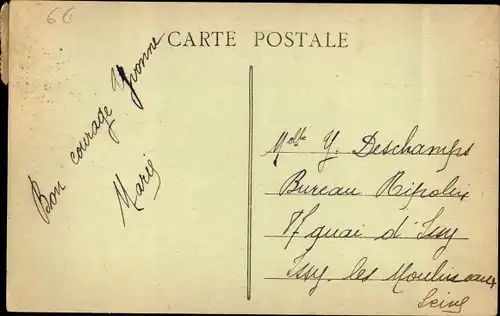 66
CARTE POSTALE
Bon courage Yvonne
Marie
Melle Y. Deschamps
Bureau Ripolin
17 quai d'Issy
Issy les Moulineaux
Seine